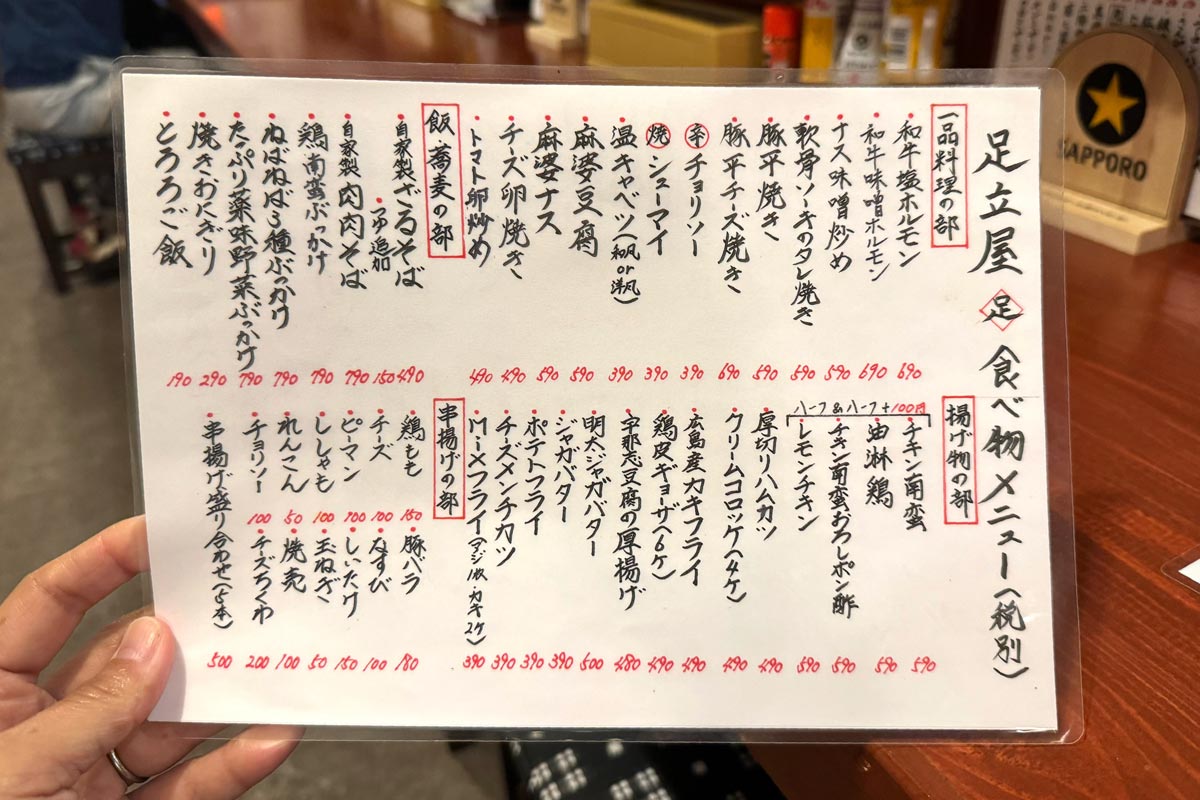 足立屋 足 食べ物メニュー(税別)
一品料理の部
和牛塩ホルモン 690
和牛味噌ホルモン 690
ナス味噌炒め 590
軟骨ソーキのタレ焼き 590
豚平焼き 590
豚平チーズ焼き 690
辛チョリソー 390
焼シューマイ 390
温キャベツ(和風or洋風) 390
麻婆豆腐 590
麻婆ナス 590
チーズ卵焼き 490
トマト卵炒め 490
飯・蕎麦の部
自家製ざるそば 490
つゆ追加 150
自家製肉肉そば 790
鶏南蛮ぶっかけ 790
ねばねば3種ぶっかけ 790
たっぷり薬味野菜ぶっかけ 790
焼きおにぎり 290
とろろご飯 190
揚げ物の部
ハーフ&ハーフ+100円
チキン南蛮 590
油淋鶏 590
チキン南蛮おろしポン酢 590
レモンチキン 590
厚切りハムカツ 490
クリームコロッケ(4ケ) 490
広島産カキフライ 490
鶏皮ギョーザ(6ケ) 490
宇那志豆腐の厚揚げ 480
明太ジャガバター 500
ジャガバター 390
ポテトフライ 390
チーズメンチカツ 390
MIXフライ(アジ1枚・カキ2ケ) 390
串揚げの部
鶏もも 150
豚バラ 180
チーズ 100
なすび 100
ピーマン 100
しいたけ 150
ししゃも 100
玉ねぎ 50
れんこん 50
焼売 100
チョリソー 100
チーズちくわ 200
串揚げ盛り合わせ(5本) 500
SAPPORO